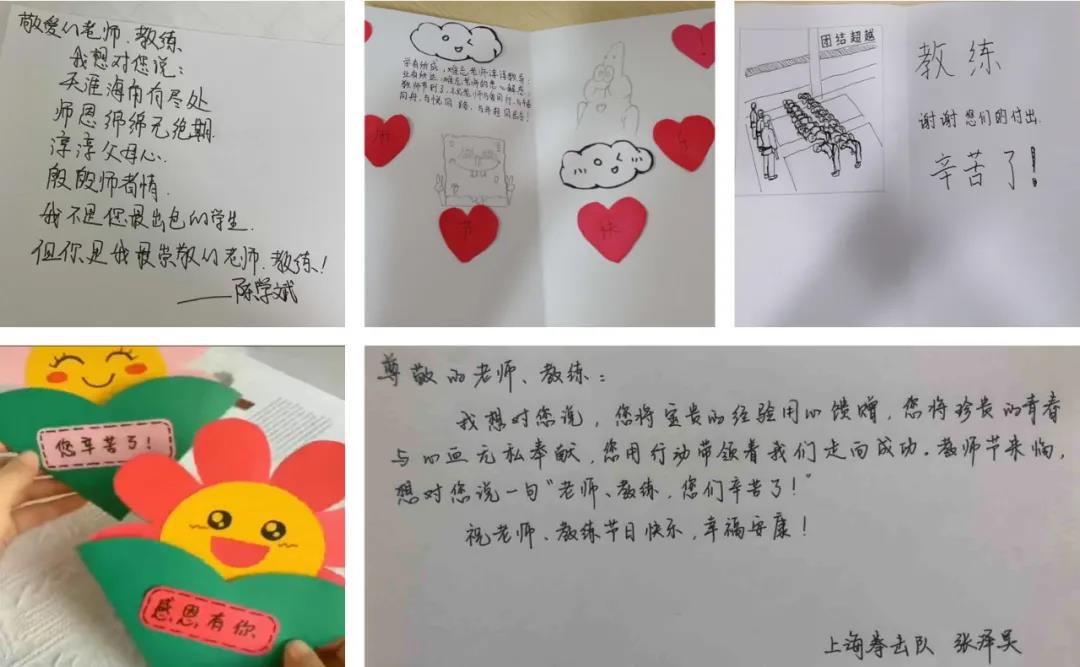 敬爱的老师、教练
我想对您说：
天涯海角有尽处
师恩绵绵无绝期
淳淳父母心
殷殷师者情
我不是您最出色的学生
但你是我最崇敬的老师、教练！
——陈学斌
学有所成，难忘老师谆谆教导；
业有所进，难忘老师的悉心解惑。
节
快
乐
团结超越
教练
谢谢您们的付出
辛苦了！
您辛苦了！
感恩有你
尊敬的老师、教练：
我想对您说，您将宝贵的经验用心馈赠，您将珍贵的青春
与心血无私奉献，您用行动带领着我们走向成功。教师节来临，
想对您说一句“老师、教练，您们辛苦了！”
祝老师、教练节日快乐，幸福安康！
上海拳击队 张泽昊